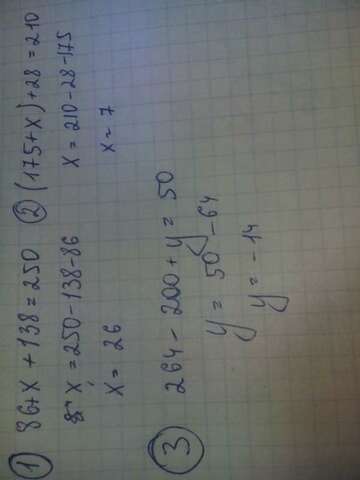 ① 86+x+138=250
x=250-138-86
x=26
② (175+x)+28=210
x=210-28-175
x=7
③ 264-200+y=50
y=50-64
y=-14